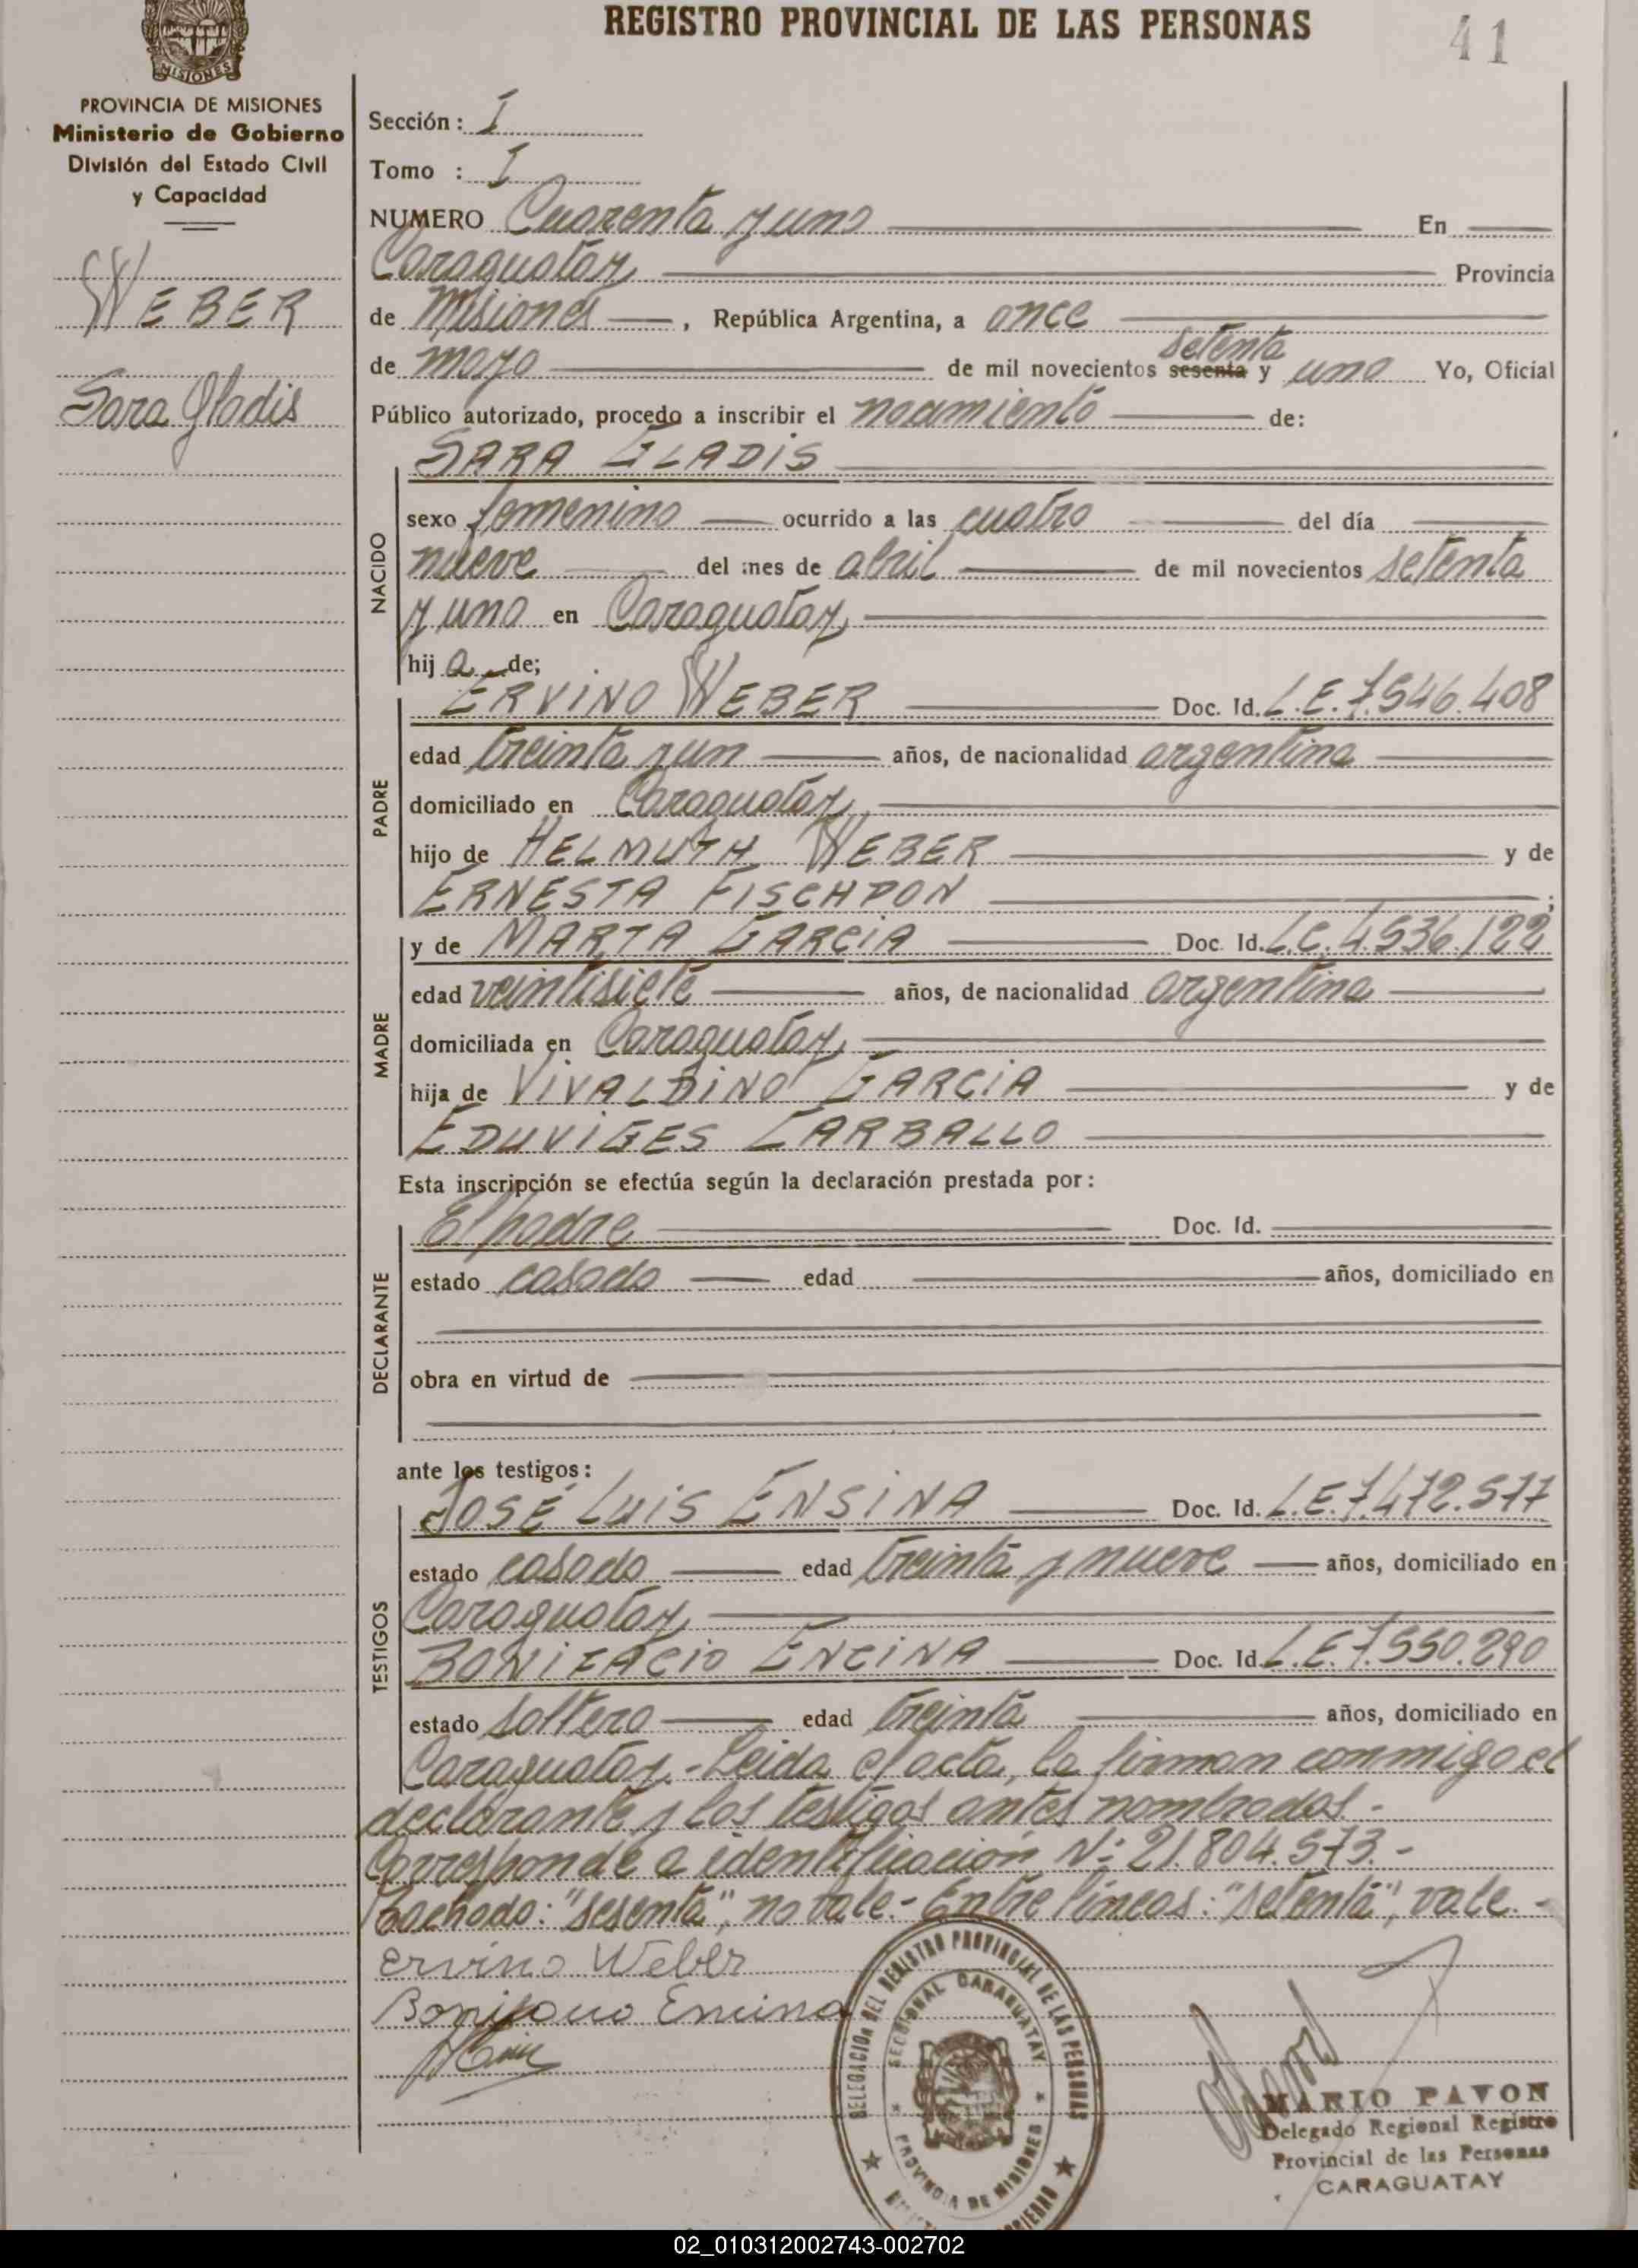 REGISTRO PROVINCIAL DE LAS PERSONAS
41
MISIONES
PROVINCIA DE MISIONES
Ministerio de Gobierno
División del Estado Civil
y Capacidad
WEBER
Sara Gladis
Sección: I
Tomo : I
NUMERO Cuarenta y uno En
Caraguatay Provincia
de Misiones, República Argentina, a once
setenta
de mayo de mil novecientos sesenta y uno Yo, Oficial
Público autorizado, procedo a inscribir el nacimiento de:
NACIDO
SARA GLADIS
sexo femenino ocurrido a las cuatro del día
nueve del mes de abril de mil novecientos setenta
y uno en Caraguatay
hija de;
PADRE
ERVINO WEBER Doc. Id. L.E. 7.546.408
edad treinta y un años, de nacionalidad argentina
domiciliado en Caraguatay
hijo de HELMUTH WEBER y de
ERNESTA FISCHDON ;
MADRE
y de MARTA GARCIA Doc. Id. L.C. 4.536.122
edad veintisiete años, de nacionalidad argentina
domiciliada en Caraguatay
hija de VIVALDINO GARCIA y de
EDUVIGES CARBALLO
Esta inscripción se efectúa según la declaración prestada por:
DECLARANTE
El padre Doc. Id.
estado casado edad años, domiciliado en
obra en virtud de
ante los testigos:
TESTIGOS
JOSÉ LUIS ENSINA Doc. Id. L.E. 7.472.577
estado casado edad treinta y nueve años, domiciliado en
Caraguatay
BONIFACIO ENCINA Doc. Id. L.E. 7.550.290
estado soltero edad treinta años, domiciliado en
Caraguatay.- Leida el acta, la firman conmigo el
declarante y los testigos antes nombrados.-
Corresponde a identificación Nº 21.804.573.-
Tachado: "sesenta", no vale.- Entre líneas: "setenta", vale.-
Ervino Weber
Bonifacio Encina
DELEGACION DEL REGISTRO PROVINCIAL DE LAS PERSONAS
SECCIONAL CARAGUATAY
PROVINCIA DE MISIONES
MARIO PAVON
Delegado Regional Registro
Provincial de las Personas
CARAGUATAY
02_010312002743-002702